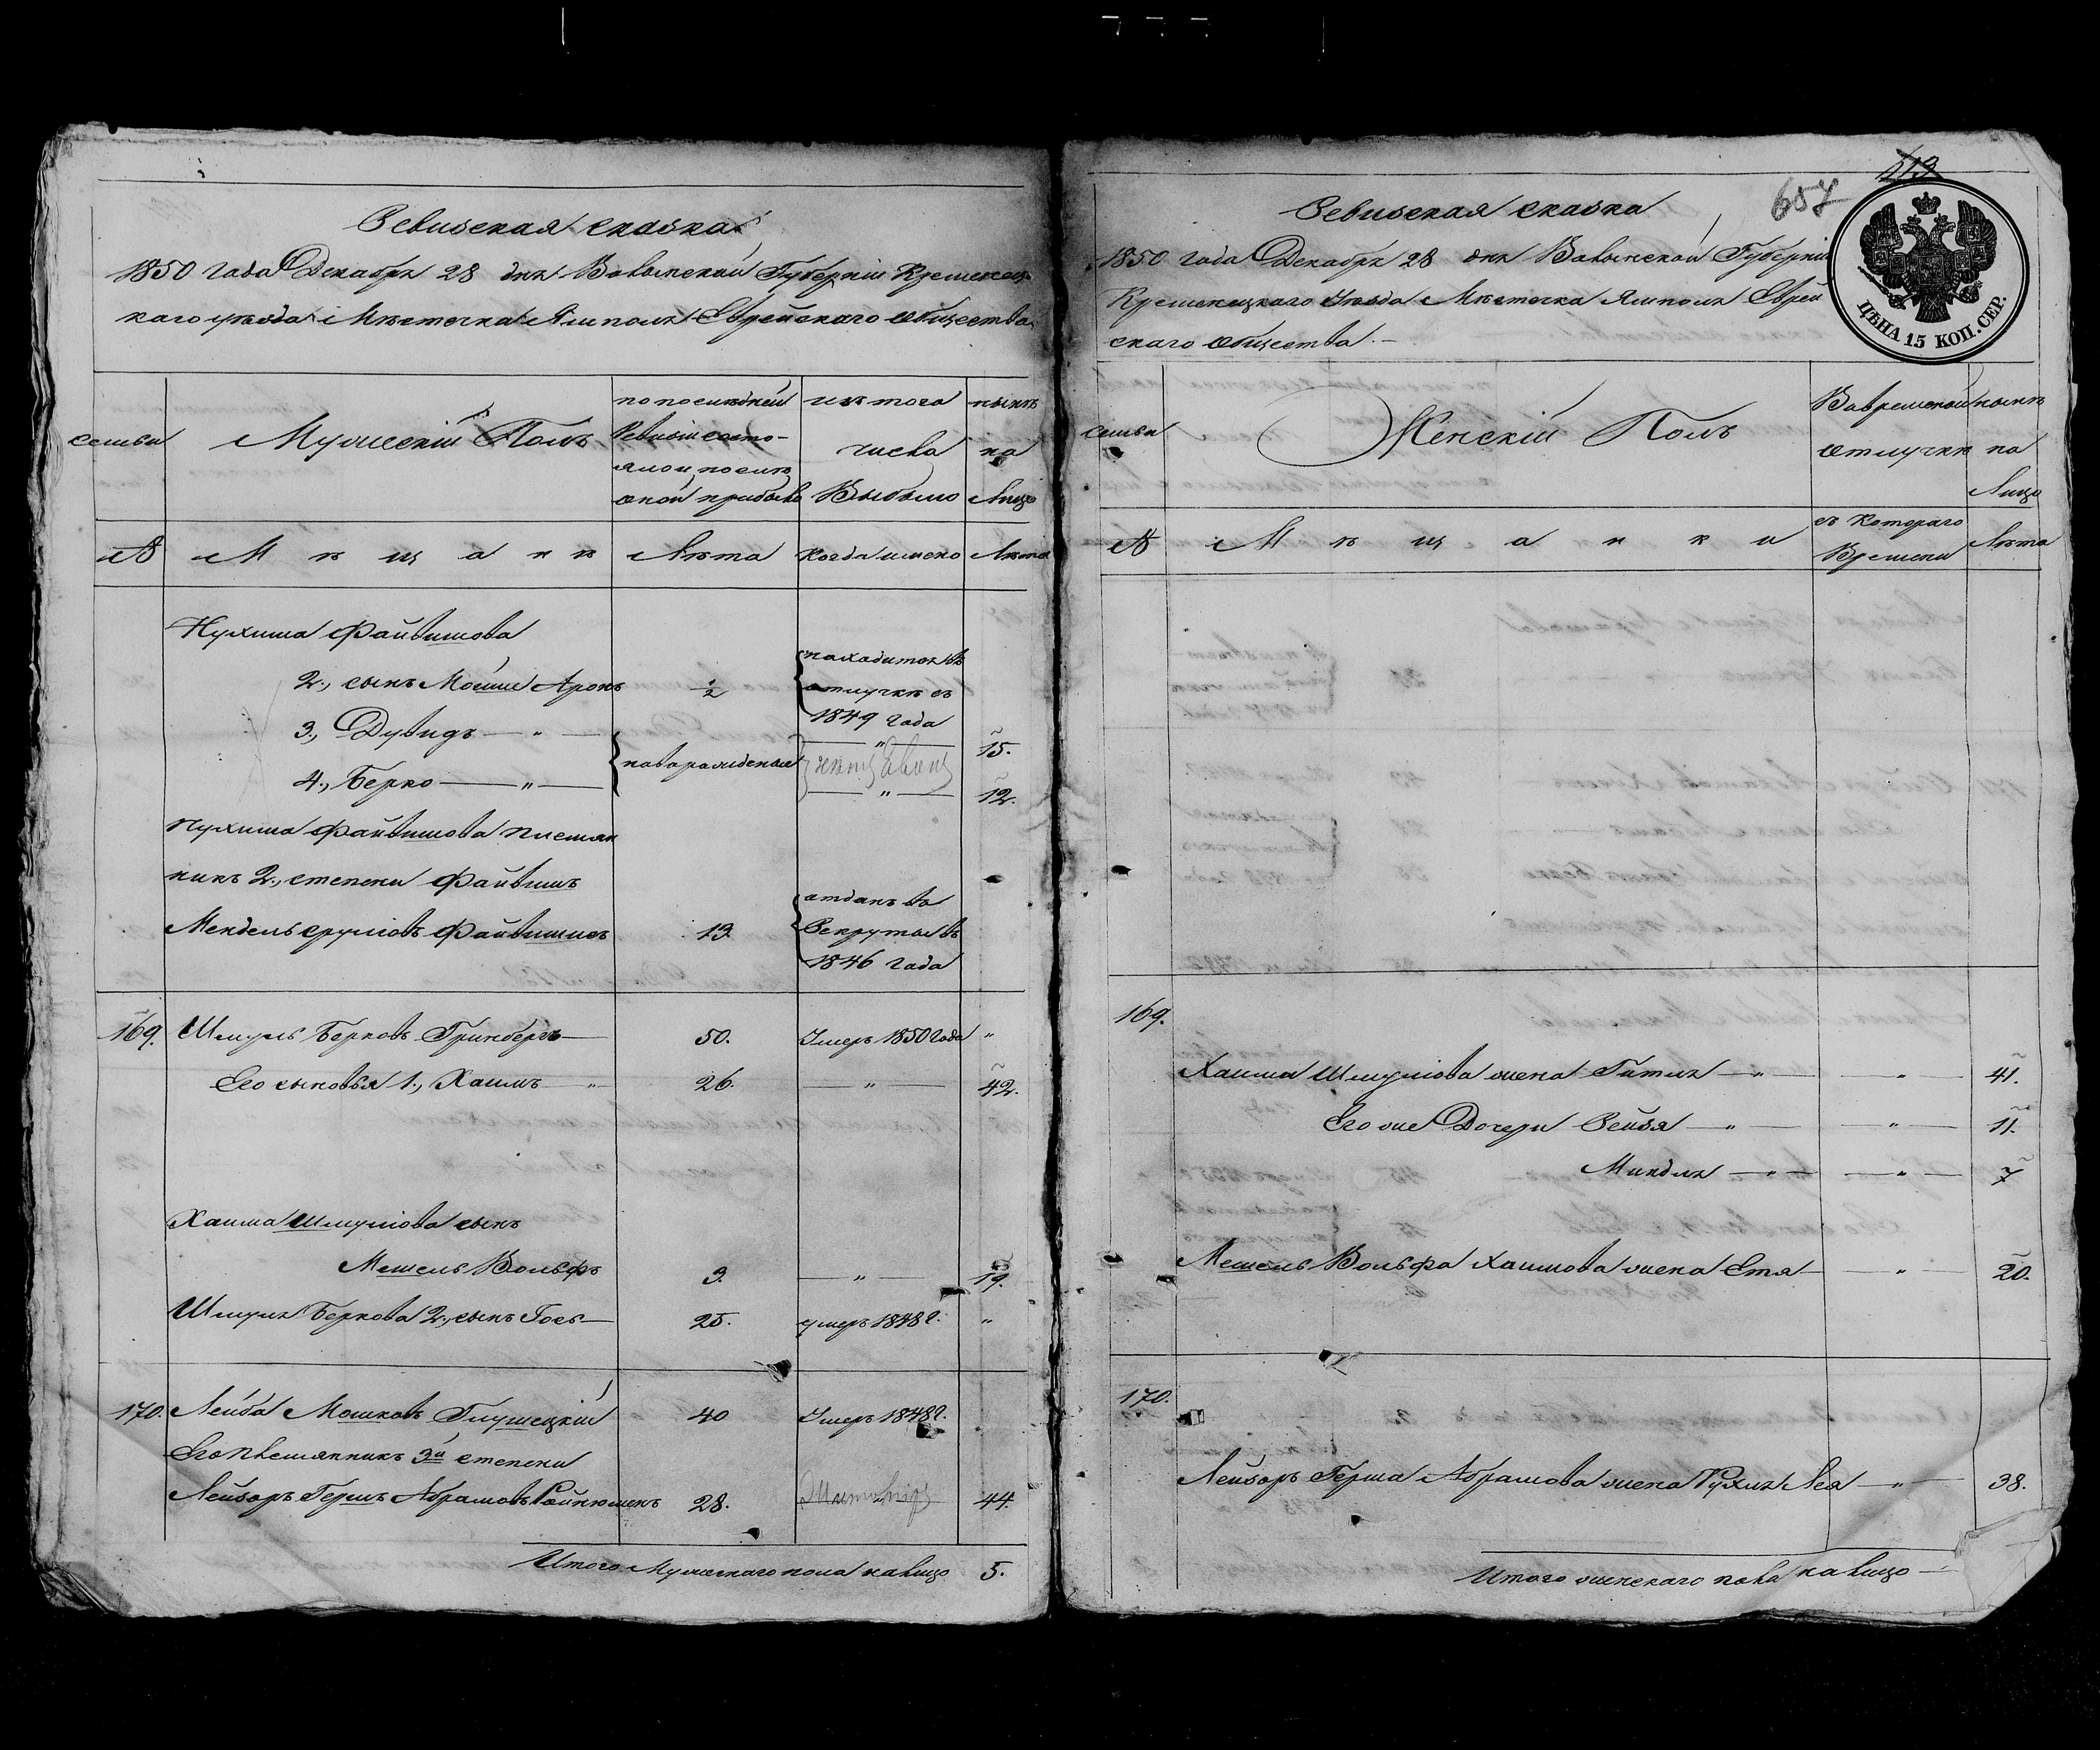 Ревизская сказка
1850 года Декабря 28 дня Волынской Губерніи Кременец-
каго уѣзда Мѣстечка Ямполя Еврейскаго общества
семьи
Мужескій Полъ
по послѣдней
Ревизіи состо-
яло и послѣ
оной прибыло
изъ того
числа
Выбыло
нынѣ
на
лицо
№
М ѣ щ а н ѣ
Лѣта
когда имено
Лѣта
Нухима Файвишова
2., сынъ Мойше Аронъ
1/2
находится въ
отлучкѣ съ
1849 года
3., Дувидъ — „ —
новорожденые
„
15.
4., Берко — „ —
„
12.
Нухима Файвишова племян
никъ 2., степени Файвишъ
Мендель Сруліовъ Файвишисъ
13.
отданъ въ
Рекруты въ
1846 года
169. Шмуль Берковъ Гринбергъ — 50. Умеръ 1850 года „
Его сыновья 1., Хаимъ — „ 26. — „ — 42.
Хаима Шмуліова сынъ
Мешель Вольфъ 3. — „ — 19.
Шмуля Беркова 2., сынъ Гось — 25. умеръ 1848 г. „
170. Лейба Мошковъ Глушецкій 40 Умеръ 1848 г.
Его племянникъ 3й степени
Лейзоръ Гершъ Абрамовъ 28. 44.
Итого Мужескаго пола налицо 5.
213
657
Ревизская сказка
1850 года Декабря 28 дня Волынской Губерніи
Кременецкаго Уѣзда Мѣстечка Ямполя Еврей
скаго общества. —
ЦѢНА 15 КОП. СЕР.
семьи
Женскій Полъ
Вовременой
отлучкѣ
нынѣ
на
Лицо
№
М ѣ щ а н к и
съ котораго
Времени
Лѣта
169.
Хаима Шмуліова жена Гитля — „ — „ — 41.
Его же Дочери Рейзя — „ — „ — 11.
Миндля — „ — — „ — 7
Мешель Вольфа Хаимова жена Етя — „ — 20.
170.
Лейзоръ Герша Абрамова жена Рухля Лея — „ — 38.
Итого женскаго пола налицо —